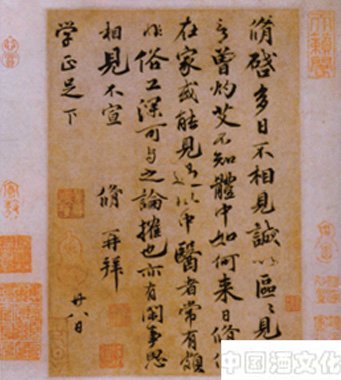 脩啓多日不相見誠以區〻見
言曾灼艾不知體中如何来日脩偶
在家或能見過此中醫者常有頗
非俗工深可与之論搉也亦有閑事思
相見不宣 脩再拜
学正足下 廿八日
中国酒文化